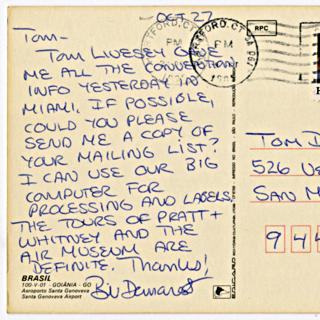 OCT 27
TOM-
TOM LIVESEY GAVE
ME ALL THE CONVENTION
INFO YESTERDAY IN
MIAMI. IF POSSIBLE,
COULD YOU PLEASE
SEND ME A COPY OF
YOUR MAILING LIST?
I CAN USE OUR BIG
COMPUTER FOR
PROCESSING AND LABELS.
THE TOURS OF PRATT +
WHITNEY AND THE
AIR MUSEUM ARE
DEFINITE. THANKS!
BRASIL
100-V-01 - GOIÂNIA - GO
Aeroporto Santa Genoveva
Santa Genoveva Airport
HARTFORD, CT
PM
HARTFORD, CT
PM
RPC
TOM
526
SAN M
944